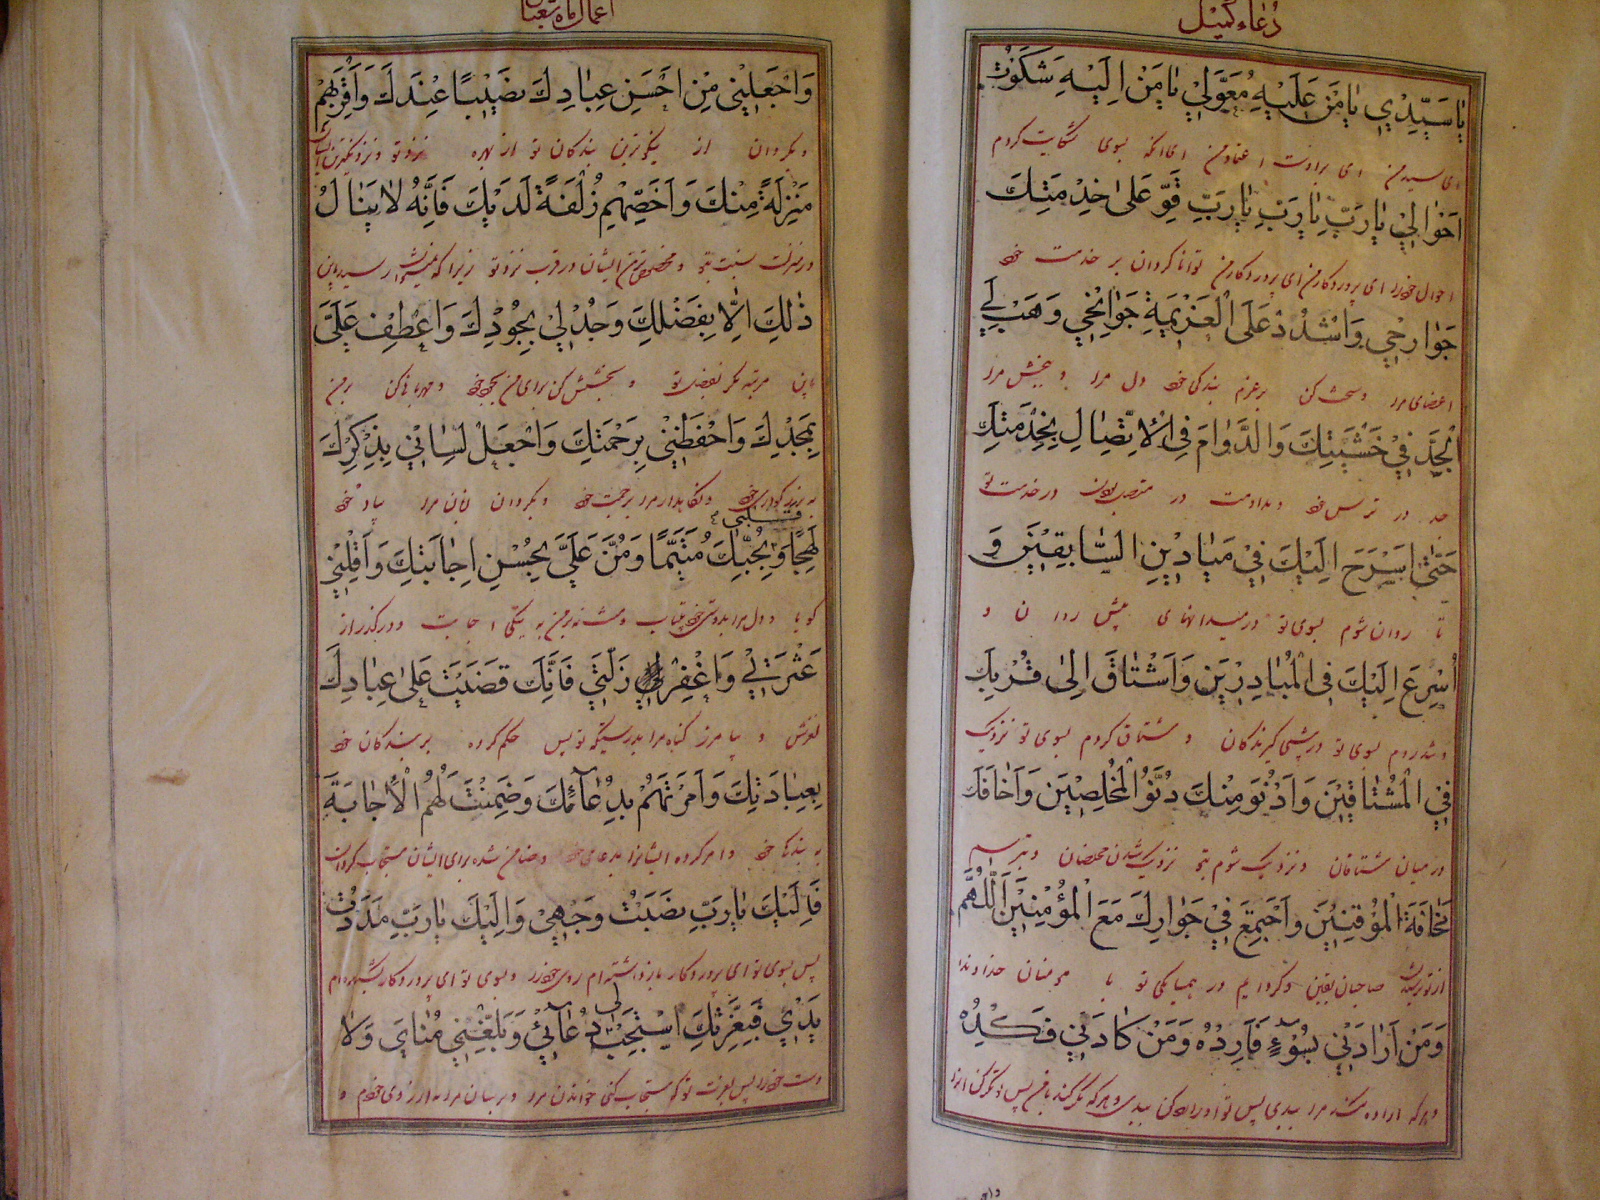 دُعَاءِ كُمَيْل
يَا سَيِّدِي يَا مَنْ عَلَيْهِ مُعَوَّلِي يَا مَنْ اِلَيْهِ شَكَوْتُ
ای سید من ای برادرت اعتماد من ای آنکه بسوی شکایت کردم
اَحْوَالِي يَا رَبِّ يَا رَبِّ يَا رَبِّ قَوِّ عَلَى خِدْمَتِكَ
احوال خود را ای پروردگار من ای پروردگار من توانا گردان بر خدمت خود
جَوَارِحِي وَاشْدُدْ عَلَى الْعَزِيمَةِ جَوَانِحِي وَهَبْ لِيَ
اعضای مرا و سخت کن بر عزم بندگی خود دل مرا و ببخش مرا
الْجِدَّ فِي خَشْيَتِكَ وَالدَّوَامَ فِي الْاِتِّصَالِ بِخِدْمَتِكَ
جد در ترس خود و مداومت در متصل بودن در خدمت تو
حَتَّى اَسْرَحَ اِلَيْكَ فِي مَيَادِينِ السَّابِقِينَ وَ
تا روان شوم بسوی تو در میدانهای پیش روان و
اُسْرِعَ اِلَيْكَ فِي الْمُبَادِرِينَ وَاَشْتَاقَ اِلَى قُرْبِكَ
بسوی تو در پیشی گیرندگان و مشتاق گردم بسوی تو نزدیک
فِي الْمُشْتَاقِينَ وَاَدْنُوَ مِنْكَ دُنُوَّ الْمُخْلِصِينَ وَاَخَافَكَ
در میان مشتاقان و نزدیک شوم بتو نزدیک شدن مخلصان و بترسم
مَخَافَةَ الْمُوقِنِينَ وَاَجْتَمِعَ فِي جَوَارِكَ مَعَ الْمُؤْمِنِينَ اَللّٰهُمَّ
از تو ترسیدن صاحبان یقین و گرد آیم در همسایگی تو با مؤمنان خداوندا
وَمَنْ اَرَادَنِي بِسُوءٍ فَاَرِدْهُ وَمَنْ كَادَنِي فَكِدْهُ
و هر که اراده کند مرا ببدی پس تو اراده کن ببدی و هر که مکر کند با من پس تو مکر کن او را
اعمال ماه شعبان
وَاجْعَلْنِي مِنْ اَحْسَنِ عِبَادِكَ نَصِيبًا عِنْدَكَ وَاَقْرَبِهِمْ
و بگردان از نیکوترین بندگان تو از بهره نزد تو و نزدیکترین ایشان
مَنْزِلَةً مِنْكَ وَاَخَصِّهِمْ زُلْفَةً لَدَيْكَ فَاِنَّهُ لَا يَنَالُ
در منزلت نسبت بتو و مخصوص ترین ایشان در قرب نزد تو زیرا که نمیتواند رسید باین
ذٰلِكَ اِلَّا بِفَضْلِكَ وَجُدْ لِي بِجُودِكَ وَاعْطِفْ عَلَيَّ
باین مرتبه مگر بفضل تو و بخشش کن برای من بجود خود و مهربانی کن بر من
بِمَجْدِكَ وَاحْفَظْنِي بِرَحْمَتِكَ وَاجْعَلْ لِسَانِي بِذِكْرِكَ
به بزرگواری خود و نگاهدار مرا برحمت خود و بگردان زبان مرا بیاد خود
قَلْبِي
لَهِجًا وَ بِحُبِّكَ مُتَيَّمًا وَمُنَّ عَلَيَّ بِحُسْنِ اِجَابَتِكَ وَاَقِلْنِي
گویا و دل مرا بدوستی خود بیتاب و منت نه بر من به نیکی اجابت و درگذر از
عَثْرَتِي وَاغْفِرْ لِي زَلَّتِي فَاِنَّكَ قَضَيْتَ عَلَى عِبَادِكَ
لغزش و بیامرز گناه مرا بدرستیکه تو پس حکم کرده بر بندگان خود
بِعِبَادَتِكَ وَاَمَرْتَهُمْ بِدُعَائِكَ وَضَمِنْتَ لَهُمُ الْاِجَابَةَ
به بندگی خود و امر کرده ایشانرا بدعای خود و ضامن شده برای ایشان مستجاب کردن
فَاِلَيْكَ يَا رَبِّ نَصَبْتُ وَجْهِي وَاِلَيْكَ يَا رَبِّ مَدَدْتُ
پس بسوی تو ای پروردگار بازداشته ام روی خود را و بسوی تو ای پروردگار کشیده ام
يَدِي فَبِعِزَّتِكَ اسْتَجِبْ لِي دُعَائِي وَبَلِّغْنِي مُنَايَ وَلَا
دست خود را پس بعزت تو که مستجاب کنی خواندن مرا و برسان مرا به آرزوی خودم و